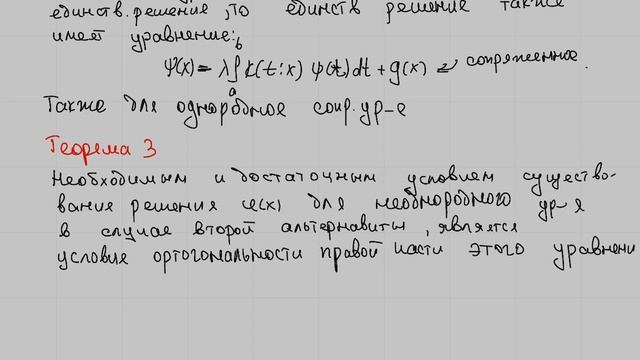 единств. решение, то единств решение также
имеет уравнение:
ψ(x) = λ∫ₐᵇ K(t;x) ψ(t)dt + g(x) сопряженное.
Также для однородное сопр. ур-е
Теорема 3
Необходимым и достаточным условием существо-
вания решения φ(x) для неоднородного ур-я
в случае второй альтернавиты, является
условие ортогональности правой части этого уравнени